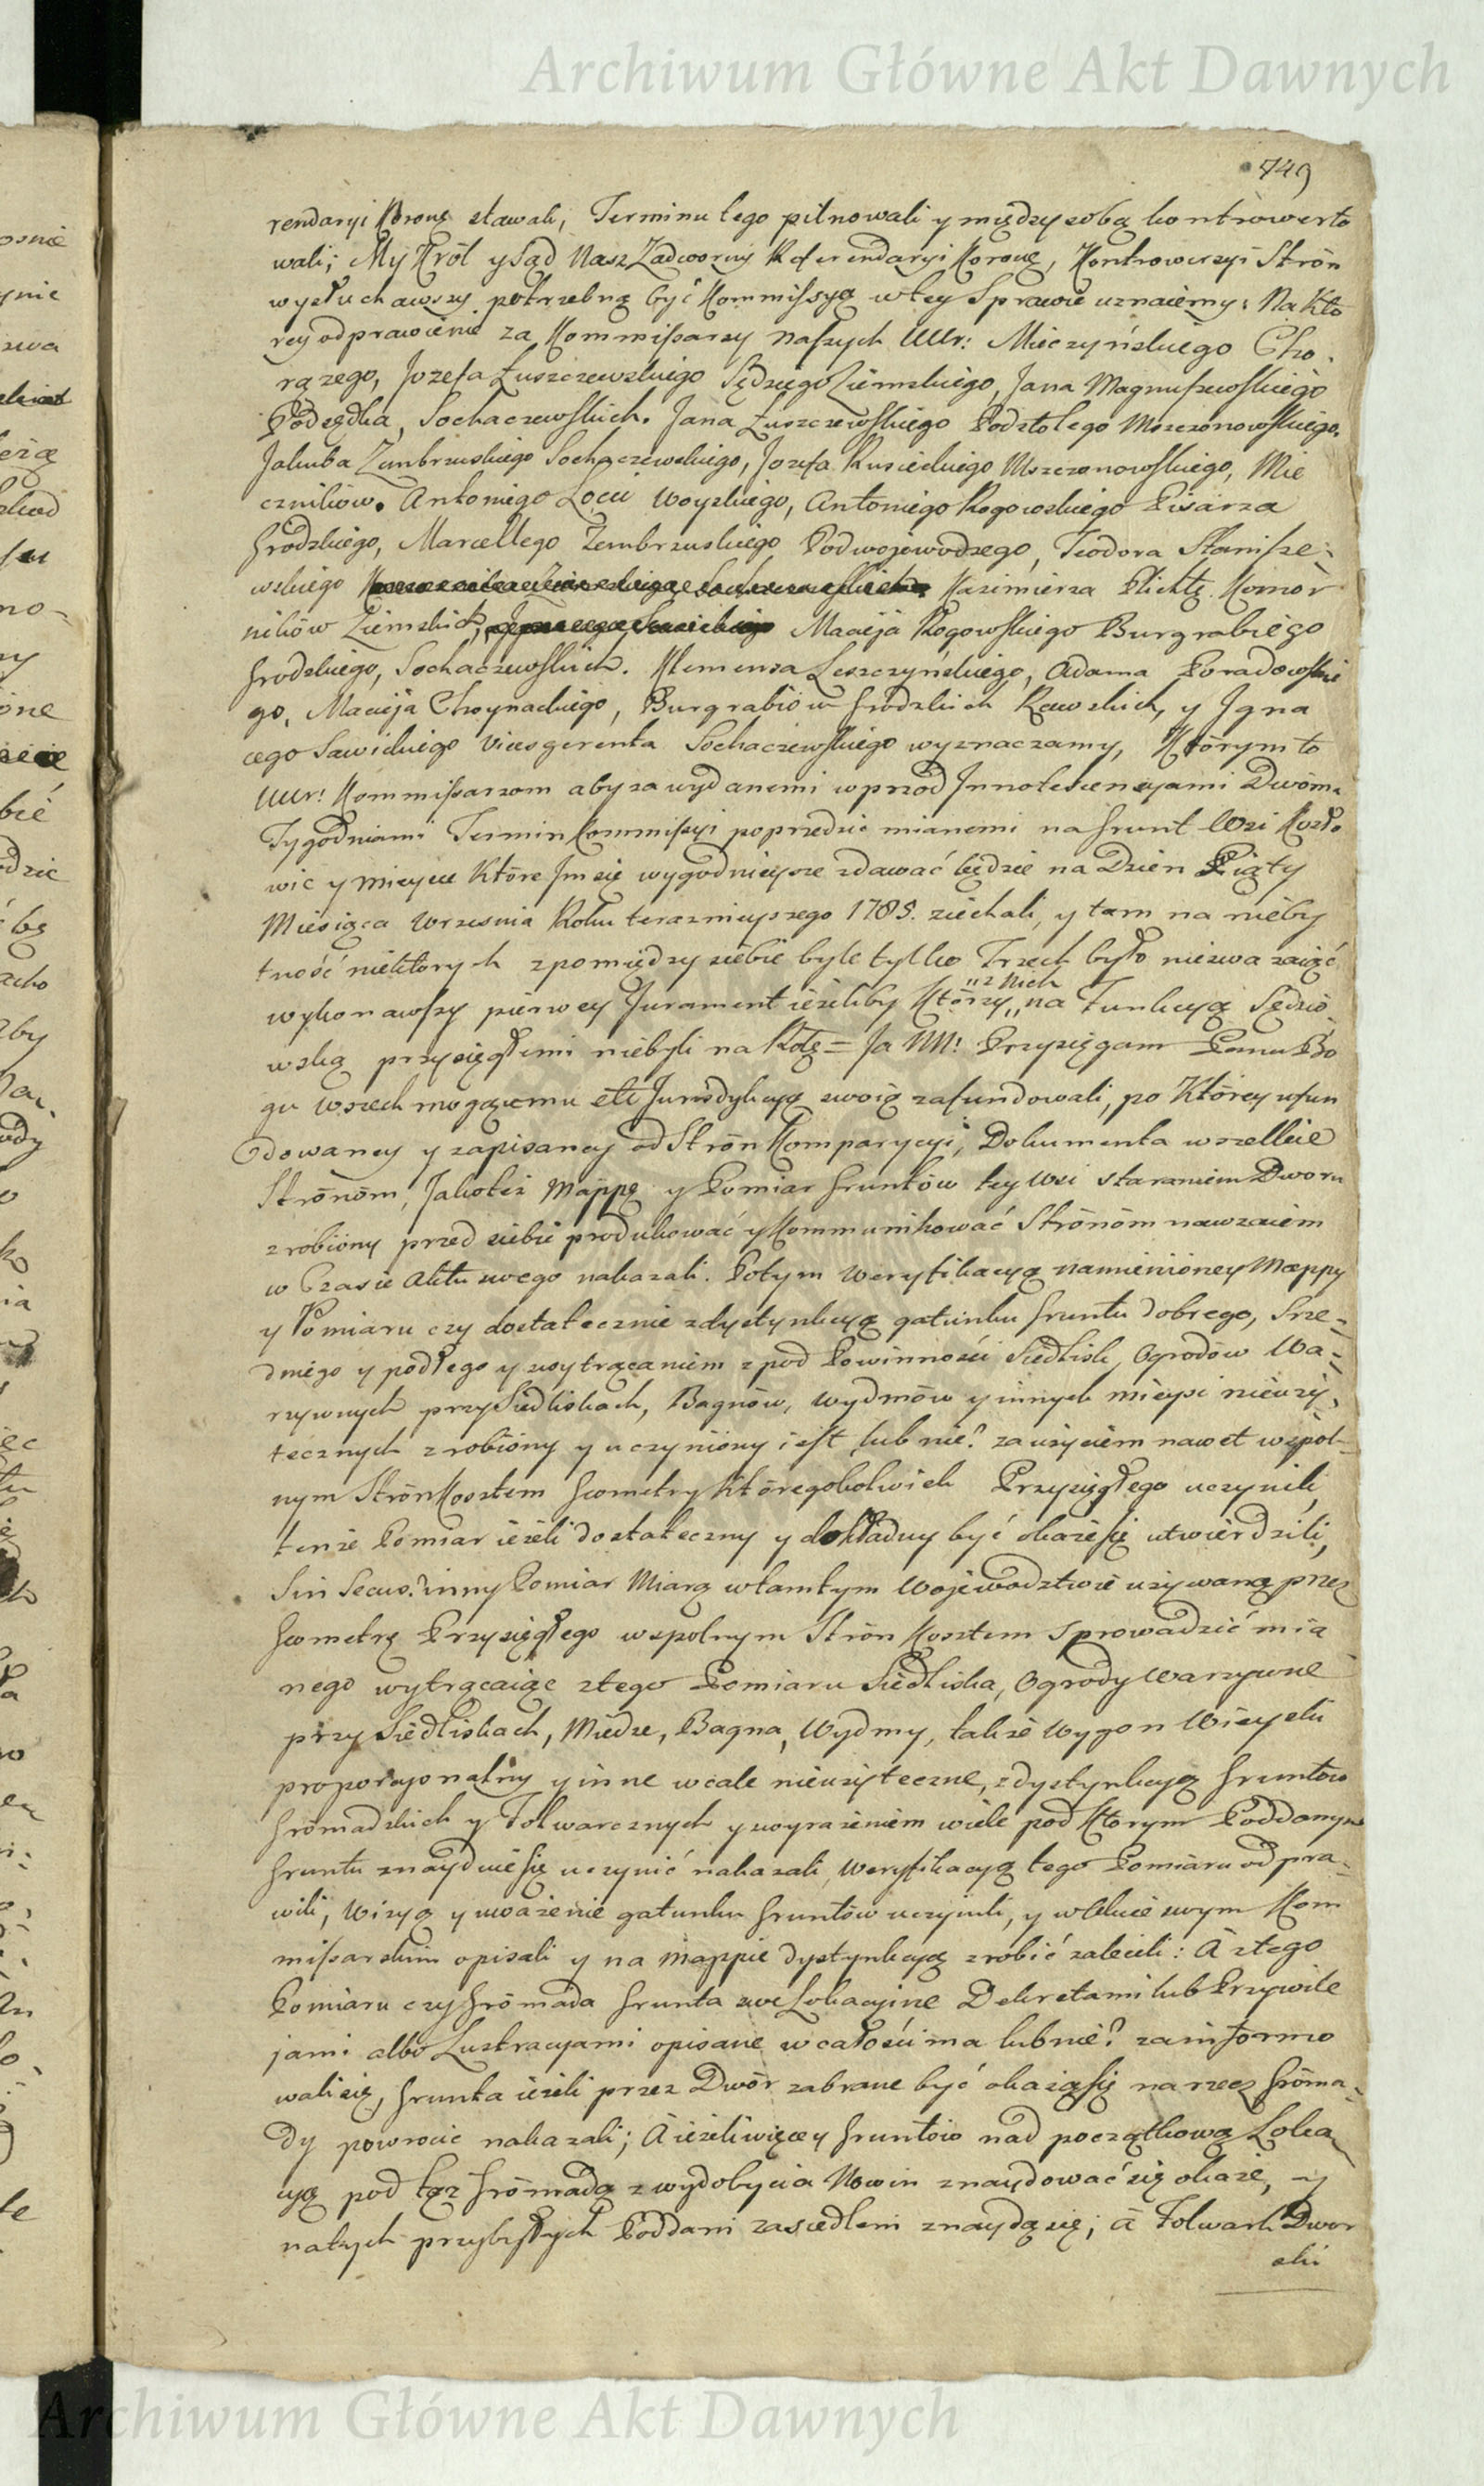 Archiwum Główne Akt Dawnych
749
rendaryi Koroney stawali, Terminu tego pilnowali y między sobą kontrowerto
wali; My Król y Sąd Nasz Zadworny Referendaryi Koroney, Kontrowersyi Strón
wysłuchawszy potrzebną być Kommissyą w tey Sprawie uznaiemy: Na Kto
rey odprawienie za Kommissarzy naszych UUr: Mieczyńskiego Cho
rązego, Jozefa Łuszczewskiego Sędziego Ziemskiego, Jana Magnuszewskiego
Podsędka, Sochaczewskich. Jana Łuszczewskiego Podstolego Mszczonowskiego,
Jakuba Zembrzuskiego Sochaczewskiego, Jozefa Rusieckiego Mszczonowskiego, Mie
czników. Antoniego Łocii Woyskiego, Antoniego Rogowskiego Pisarza
Grodzkiego, Marcellego Zembrzuskiego Podwojewodzego, Teodora Stanisze-
wskiego Kazimierza Plichtę Komor
ników Ziemskich, Macieja Rogowskiego Burgrabiego
Grodzkiego, Sochaczewskich. Klemensa Leszczyńskiego, Adama Poradowskie
go, Macieja Choynackiego, Burgrabiów Grodzkich Rawskich, y Igna
cego Sawickiego Vicesgerenta Sochaczewskiego wyznaczamy, Którym to
UUr! Kommissarzom aby za wydanemi wprzód Innotescencyami Dwóma
Tygodniami Termin Kommissyi poprzedzic mianemi na Grunt Wsi Kozło
wic y mieysce Które Jm się wygodnieysze zdawać będzie na Dzien Piąty
Miesiąca Wrzesnia Roku teraznieyszego 1785. ziechali, y tam na nieby
tność niektorych zpomiędzy siebie byle tylko Trzech było niezwazaiąć
wykonawszy pierwey Jurament ieżeliby Którzy „z nich„ na Funkcyą Sędzio
wską przysięgłemi niebyli na Rotę = Ja NN! Przysięgam Panu Bo
gu Wszechmogącemu etc Jurisdykcyą swoię zafundowali, po Którey ufun
dowaney y zapisaney od Strón Komparycyi, Dokumenta wszelkie
Strónóm, Jakoteż Mappę y Pomiar Gruntów tey Wsi staraniem Dworu
zrobiony przed siebie produkować y Kommunikować Strónóm nawzaiem
w Czasie Aktu swego nakazali. Potym Weryfikacyą namienioney Mappy
y Pomiaru czy dostatecznie zdystynkcyą gatunku Gruntu dobrego, Srze-
dniego y podłego y wytrąceniem z pod Powinności Siedlisk, Ogrodów Wa-
rzywnych przy Siedliskach, Bagnów, Wydmów y innych mieysc nieuży-
tecznych zrobiony y uczyniony iest lub nie? zaużyciem nawet wspól-
nym Strón Kosztem Geometry Któregokolwiek Przysięgłego uczynili,
tenże Pomiar ieżeli dostateczny y dokładny być okaże się utwierdzili,
Sin Secus: inny Pomiar Miarą w tamtym Województwie używaną przez
Geometrę Przysięgłego wspolnym Strón Kosztem sprowadzić mia
nego wytrącaiąc z tego Pomiaru Siedliska, Ogrody Warzywne
przy Siedliskach, Miedze, Bagna, Wydmy, także Wygon Wieyski
proporcyonalny y inne wcale nieużyteczne, zdystynkcyą Gruntów
Gromadzkich y Folwarcznych y wyrażeniem wiele pod Ktorym Poddanym
Gruntu znayduie się uczynić nakazali, Weryfikacyą tego Pomiaru odpra-
wili, Wizyą y uważenie gatunku Gruntów uczynili, y w Akcie swym Kom
missarskim opisali y na Mappie dystynkcyą zrobić zalecili: A z tego
Pomiaru czy Gromada Grunta swe Lokacyine Dekretami lub Przywile
jami albo Lustracyami opisane w całości ma lub nie? zainformo
wali się, Grunta ieżeli przez Dwór zabrane być okażą się na rzecz Gróma-
dy powrocic nakazali; A ieżeli więcey Gruntów nad początkową Loka
cyą pod tąż Grómadą z wydobycia Nowin znaydować się okaże, y
natych przybyłych Poddani zasiedleni znaydą się; á Folwark Dwor
ski
Archiwum Główne Akt Dawnych